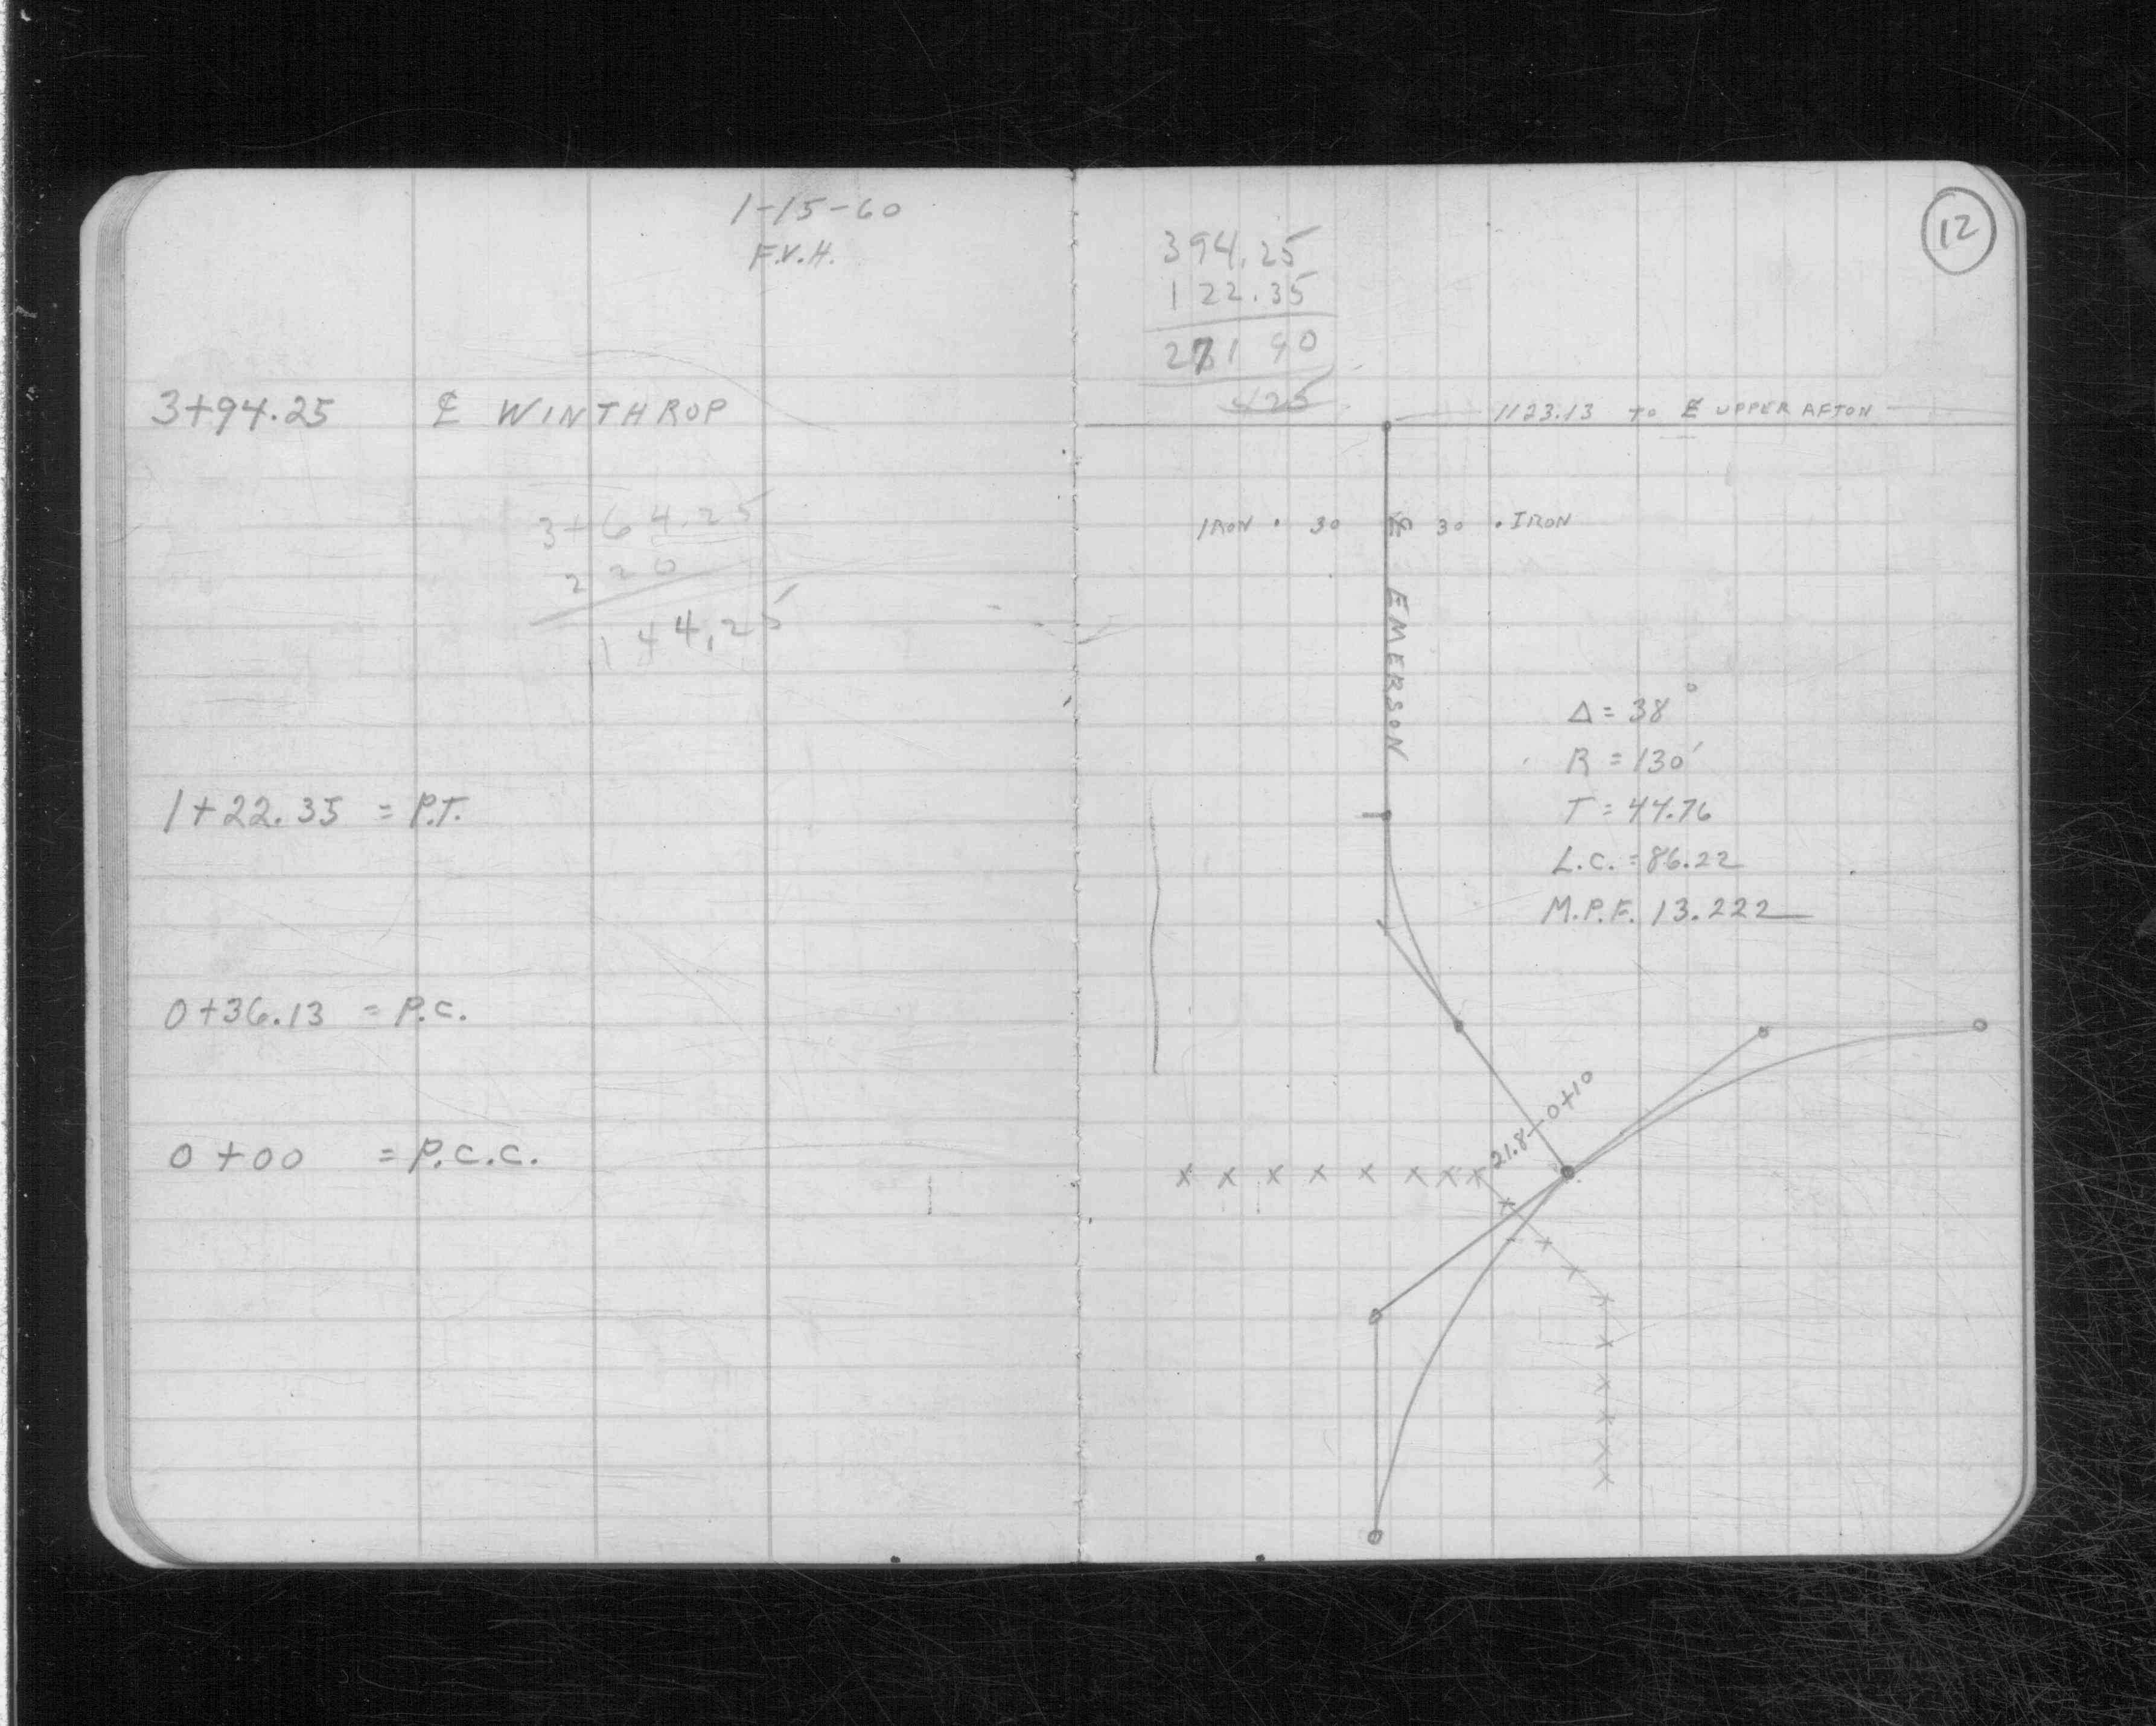 1-15-60
F.V.H.
3+94.25 ℄ WINTHROP
3+64.25
220
144.25
1+22.35 = P.T.
0+36.13 = P.C.
0+00 = P.C.C.
12
394.25
122.35
271 90
425
1123.13 to ℄ UPPER AFTON
IRON · 30 ℄ 30 · IRON
EMERSON
Δ = 38°
R = 130'
T = 44.76
L.C. = 86.22
M.P.F. 13.222
21.8 - 0+10